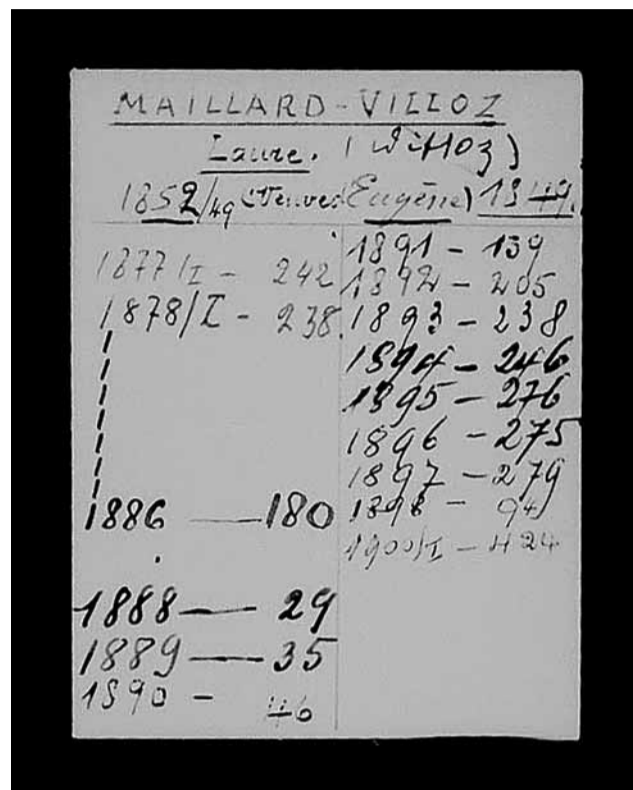 MAILLARD-VILLOZ
Laure. (Villoz)
1852/49 (Veuve Eugène) 1849.
1877/I - 242
1878/I - 238
1886 — 180
1888 — 29
1889 — 35
1890 - 46
1891 - 159
1892 - 205
1893 - 238
1894 - 246
1895 - 276
1896 - 275
1897 - 279
1898 - 94
1900/I - 424